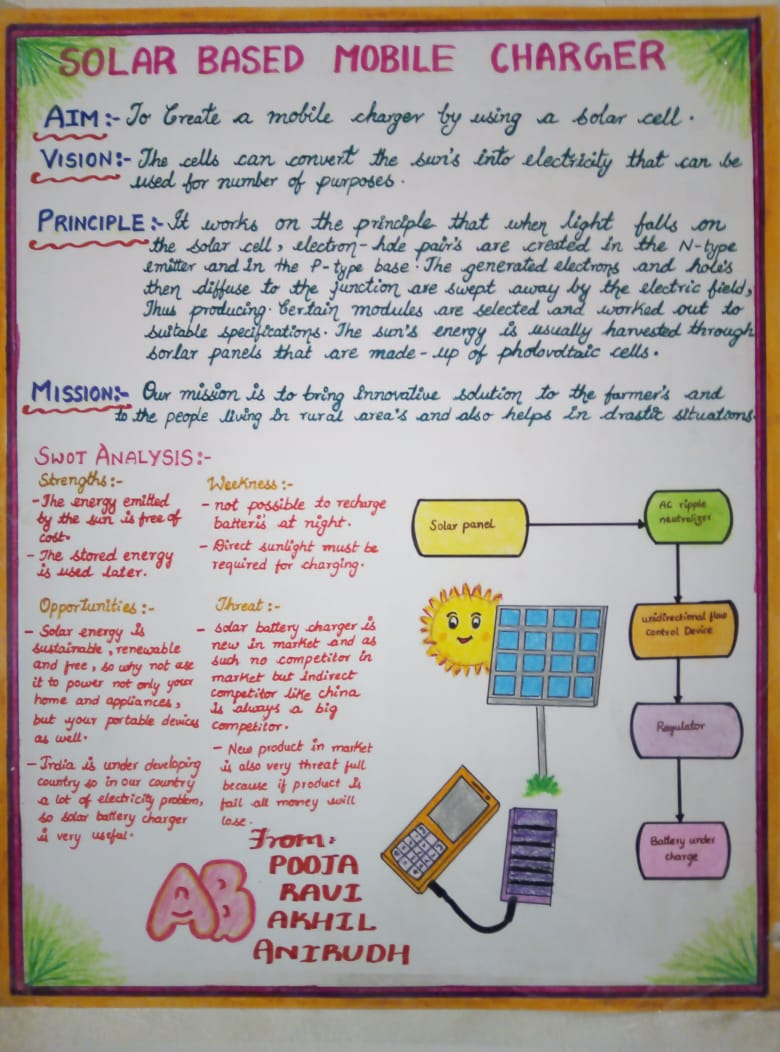 SOLAR BASED MOBILE CHARGER
AIM:- To Create a mobile charger by using a solar cell.
VISION:- The cells can convert the sun's into electricity that can be
used for number of purposes.
PRINCIPLE:- It works on the principle that when light falls on
the solar cell, electron-hole pair's are created in the N-type
emitter and in the P-type base. The generated electrons and hole's
then diffuse to the junction are swept away by the electric field,
Thus producing. Certain modules are selected and worked out to
suitable specifications. The sun's energy is usually harvested through
sorlar panels that are made-up of photovoltaic cells.
MISSION:- Our mission is to bring innovative solution to the farmer's and
to the people living in rural area's and also helps in drastic situations.
SWOT ANALYSIS:-
Strengths:-
- The energy emitted
by the sun is free of
cost.
- The stored energy
is used later.
Weekness:-
- not possible to recharge
batteris at night.
- Direct sunlight must be
required for charging.
Opportunities:-
- Solar energy is
sustainable, renewable
and free, so why not use
it to power not only your
home and appliances,
but your portable devices
as well.
- India is under developing
country so in our country
a lot of electricity problem,
so solar battery charger
is very useful.
Threat:-
- solar battery charger is
new in market and as
such no competitor in
market but indirect
competitor like china
is always a big
competitor.
- New product in market
is also very threat full
because if product is
fail all money will
lose.
Solar panel
AC ripple
neutralizer
unidirectional flow
control Device
Regulator
Battery under
charge
From:
POOJA
RAVI
AKHIL
ANIRUDH
AB